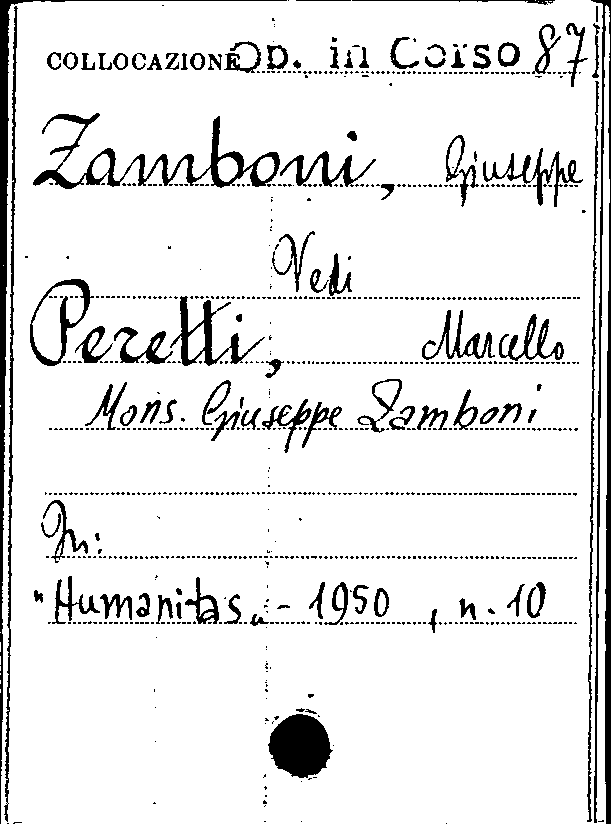 COLLOCAZIONE Op. in Corso 87
Zamboni, Giuseppe
Vedi
Peretti, Marcello
Mons. Giuseppe Zamboni
In:
"Humanitas„ - 1950, n. 10